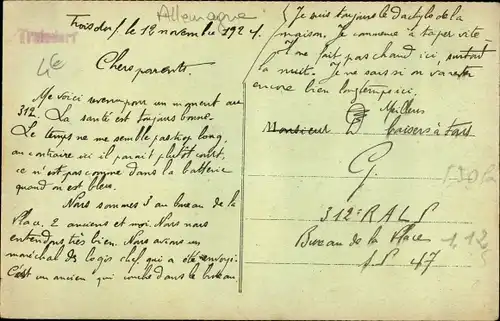 Allemagne
Troisdorf
Troisdorf le 12 novembre 1924.
4€
Chers parents.
Me voici revenu pour un moment au
312. La santé est toujours bonne.
Le temps ne me semble pas trop long,
au contraire ici il parait plutôt court,
ce n'est pas comme dans la batterie
quand on est bleu.
Nous sommes 3 au bureau de la
Place, 2 anciens et moi. Nous nous
entendons très bien. Nous avions un
maréchal des logis chef qui a été
C'est un ancien qui couche dans le bureau.
Je suis toujours le dactylo de la
maison. Je commence à taper vite.
Il ne fait pas chaud ici, surtout
la nuit. Je ne sais si on va rester
encore bien longtemps ici.
Meilleurs
baisers à tous
Monsieur
G
312e R.A.L.P
Bureau de la Place
S.P 47
1,12